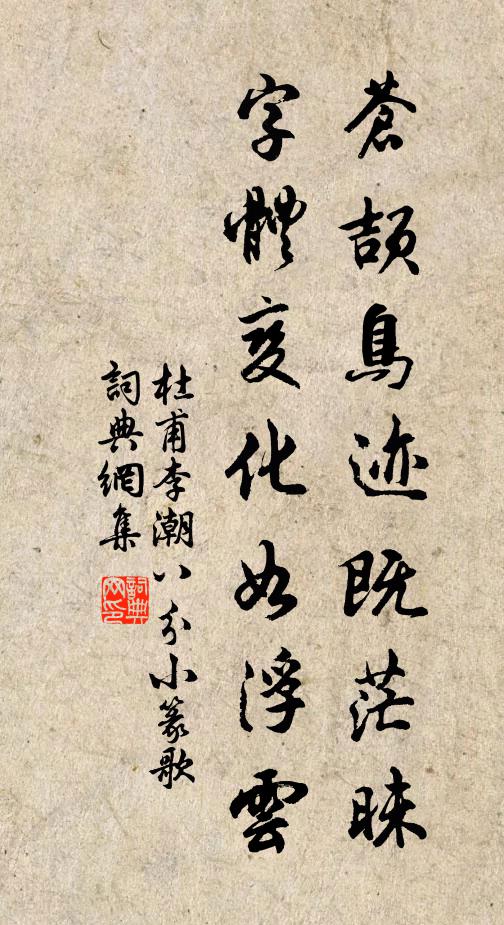 蒼頡鳥迹既茫昧
字體變化如浮雲
杜甫李潮八分小篆歌
詞典網集
詞典
网印